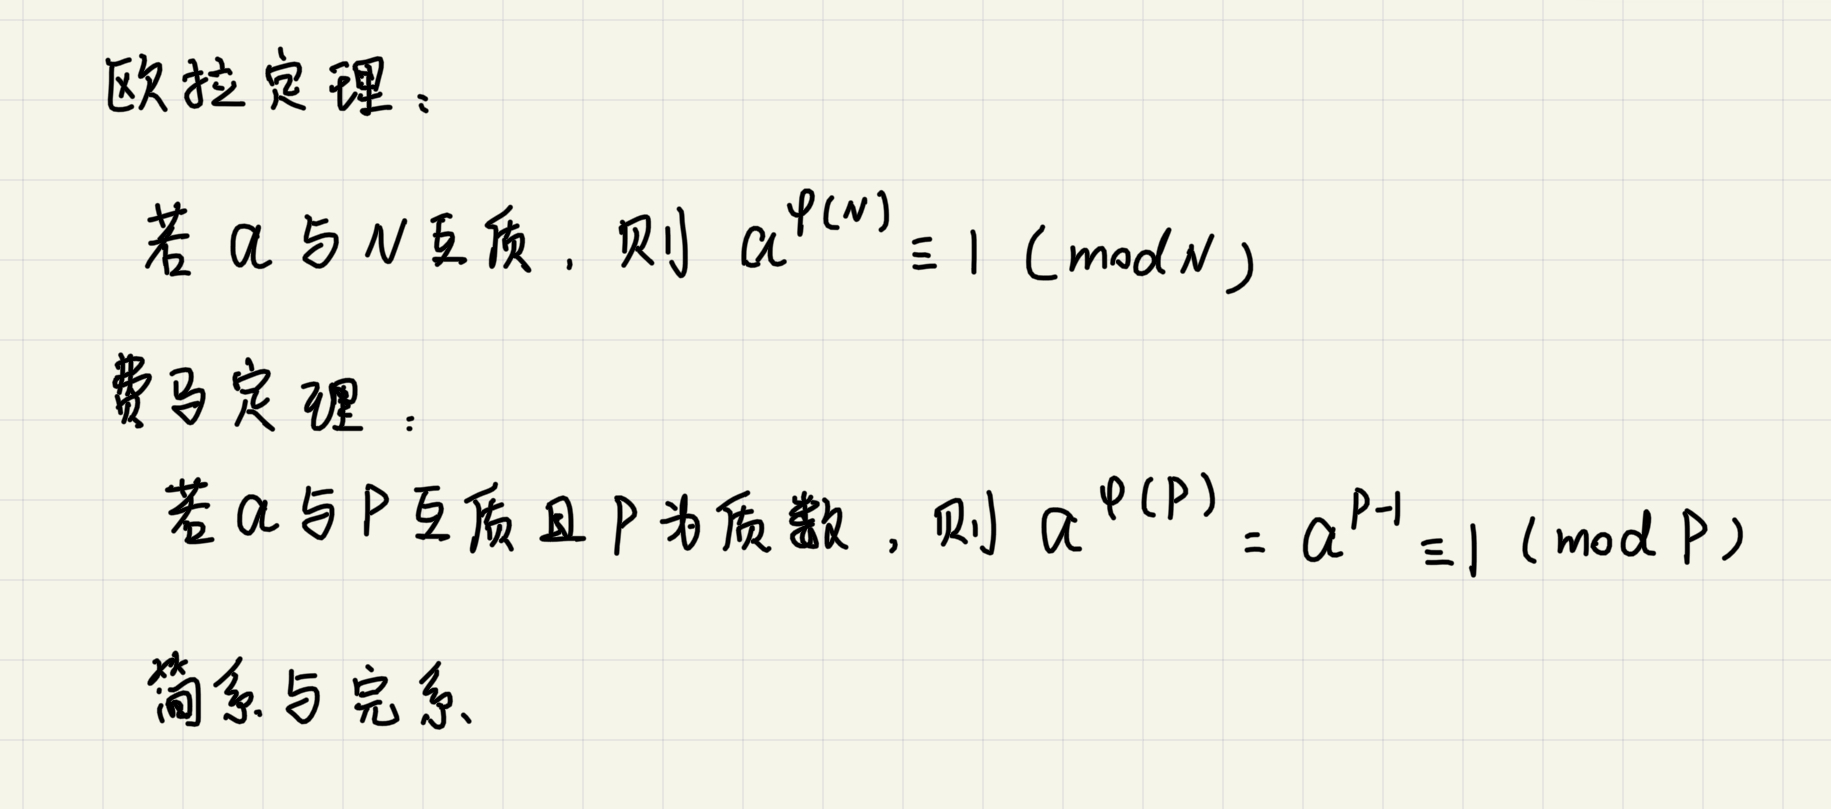 欧拉定理：
若 a 与 N 互质，则 a^φ(N) ≡ 1 (mod N)
费马定理：
若 a 与 P 互质且 P 为质数，则 a^φ(P) = a^P-1 ≡ 1 (mod P)
简系与完系